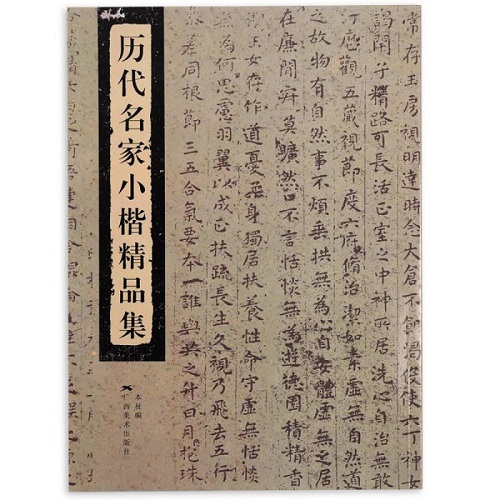 历代名家小楷精品集
本社编
广西美术出版社
常存玉房視明達時念大倉不飢渴役使六丁神女
謁閉子精路可長活正室之中神所居洗心自治無敢
汙歷觀五藏視節度六府脩治潔如素虛無自然道
之故物有自然事不煩垂拱無為心自安體虛無之
在廉間寂莫曠然口不言恬惔無為遊德園積精香
玉女存作道憂柔身獨居扶養性命守虛無恬惔
為何思慮羽翼以成正扶疏長生久視乃飛去五行
差同根節三五合氣要本一誰與共之升日月抱珠